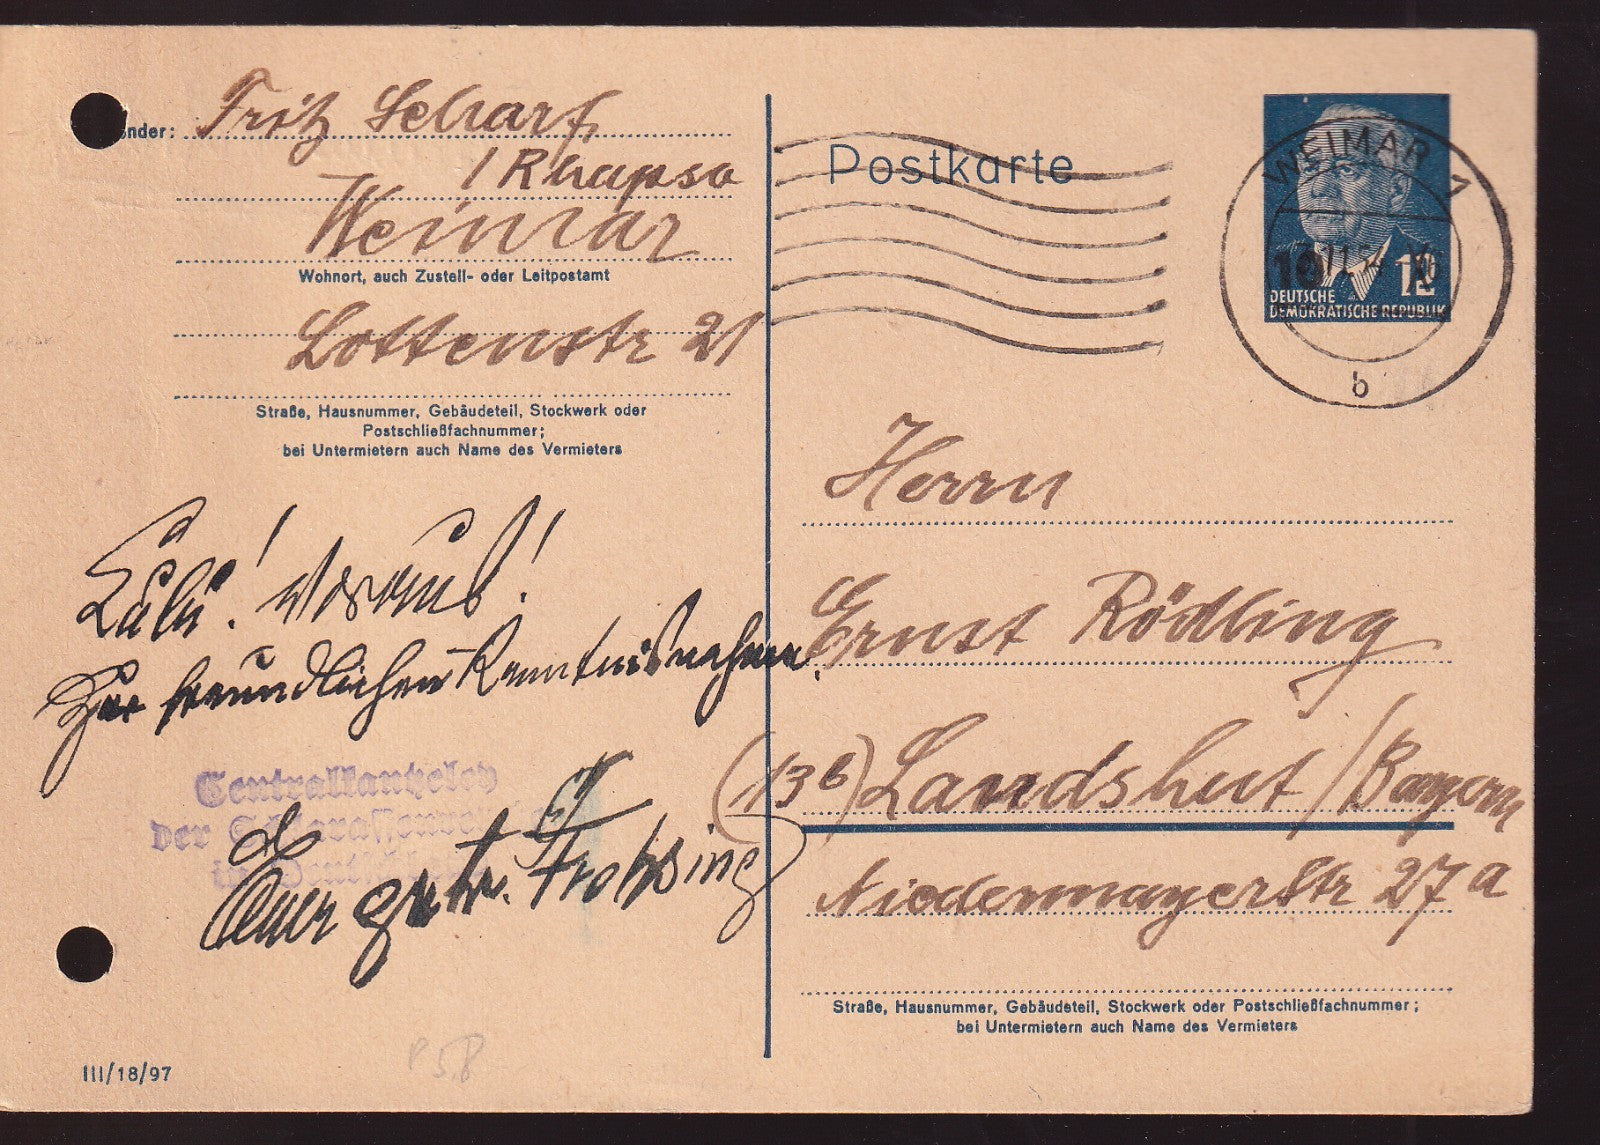 Absender: Fritz Scharf,
/ Rhapso
Weimar
Wohnort, auch Zustell- oder Leitpostamt
Lottenstr 21
Straße, Hausnummer, Gebäudeteil, Stockwerk oder
Postschließfachnummer;
bei Untermietern auch Name des Vermieters
Lulu! voraus!
Zur freundlichen Kenntnisnahme.
Centralkanzeley
der
in
Euer
Postkarte
WEIMAR 1
b
10
12
DEUTSCHE
DEMOKRATISCHE REPUBLIK
Herrn
Ernst Rödling
(13b) Landshut / Bayern
Niedermayerstr 27a
Straße, Hausnummer, Gebäudeteil, Stockwerk oder Postschließfachnummer;
bei Untermietern auch Name des Vermieters
III/18/97
P 5B